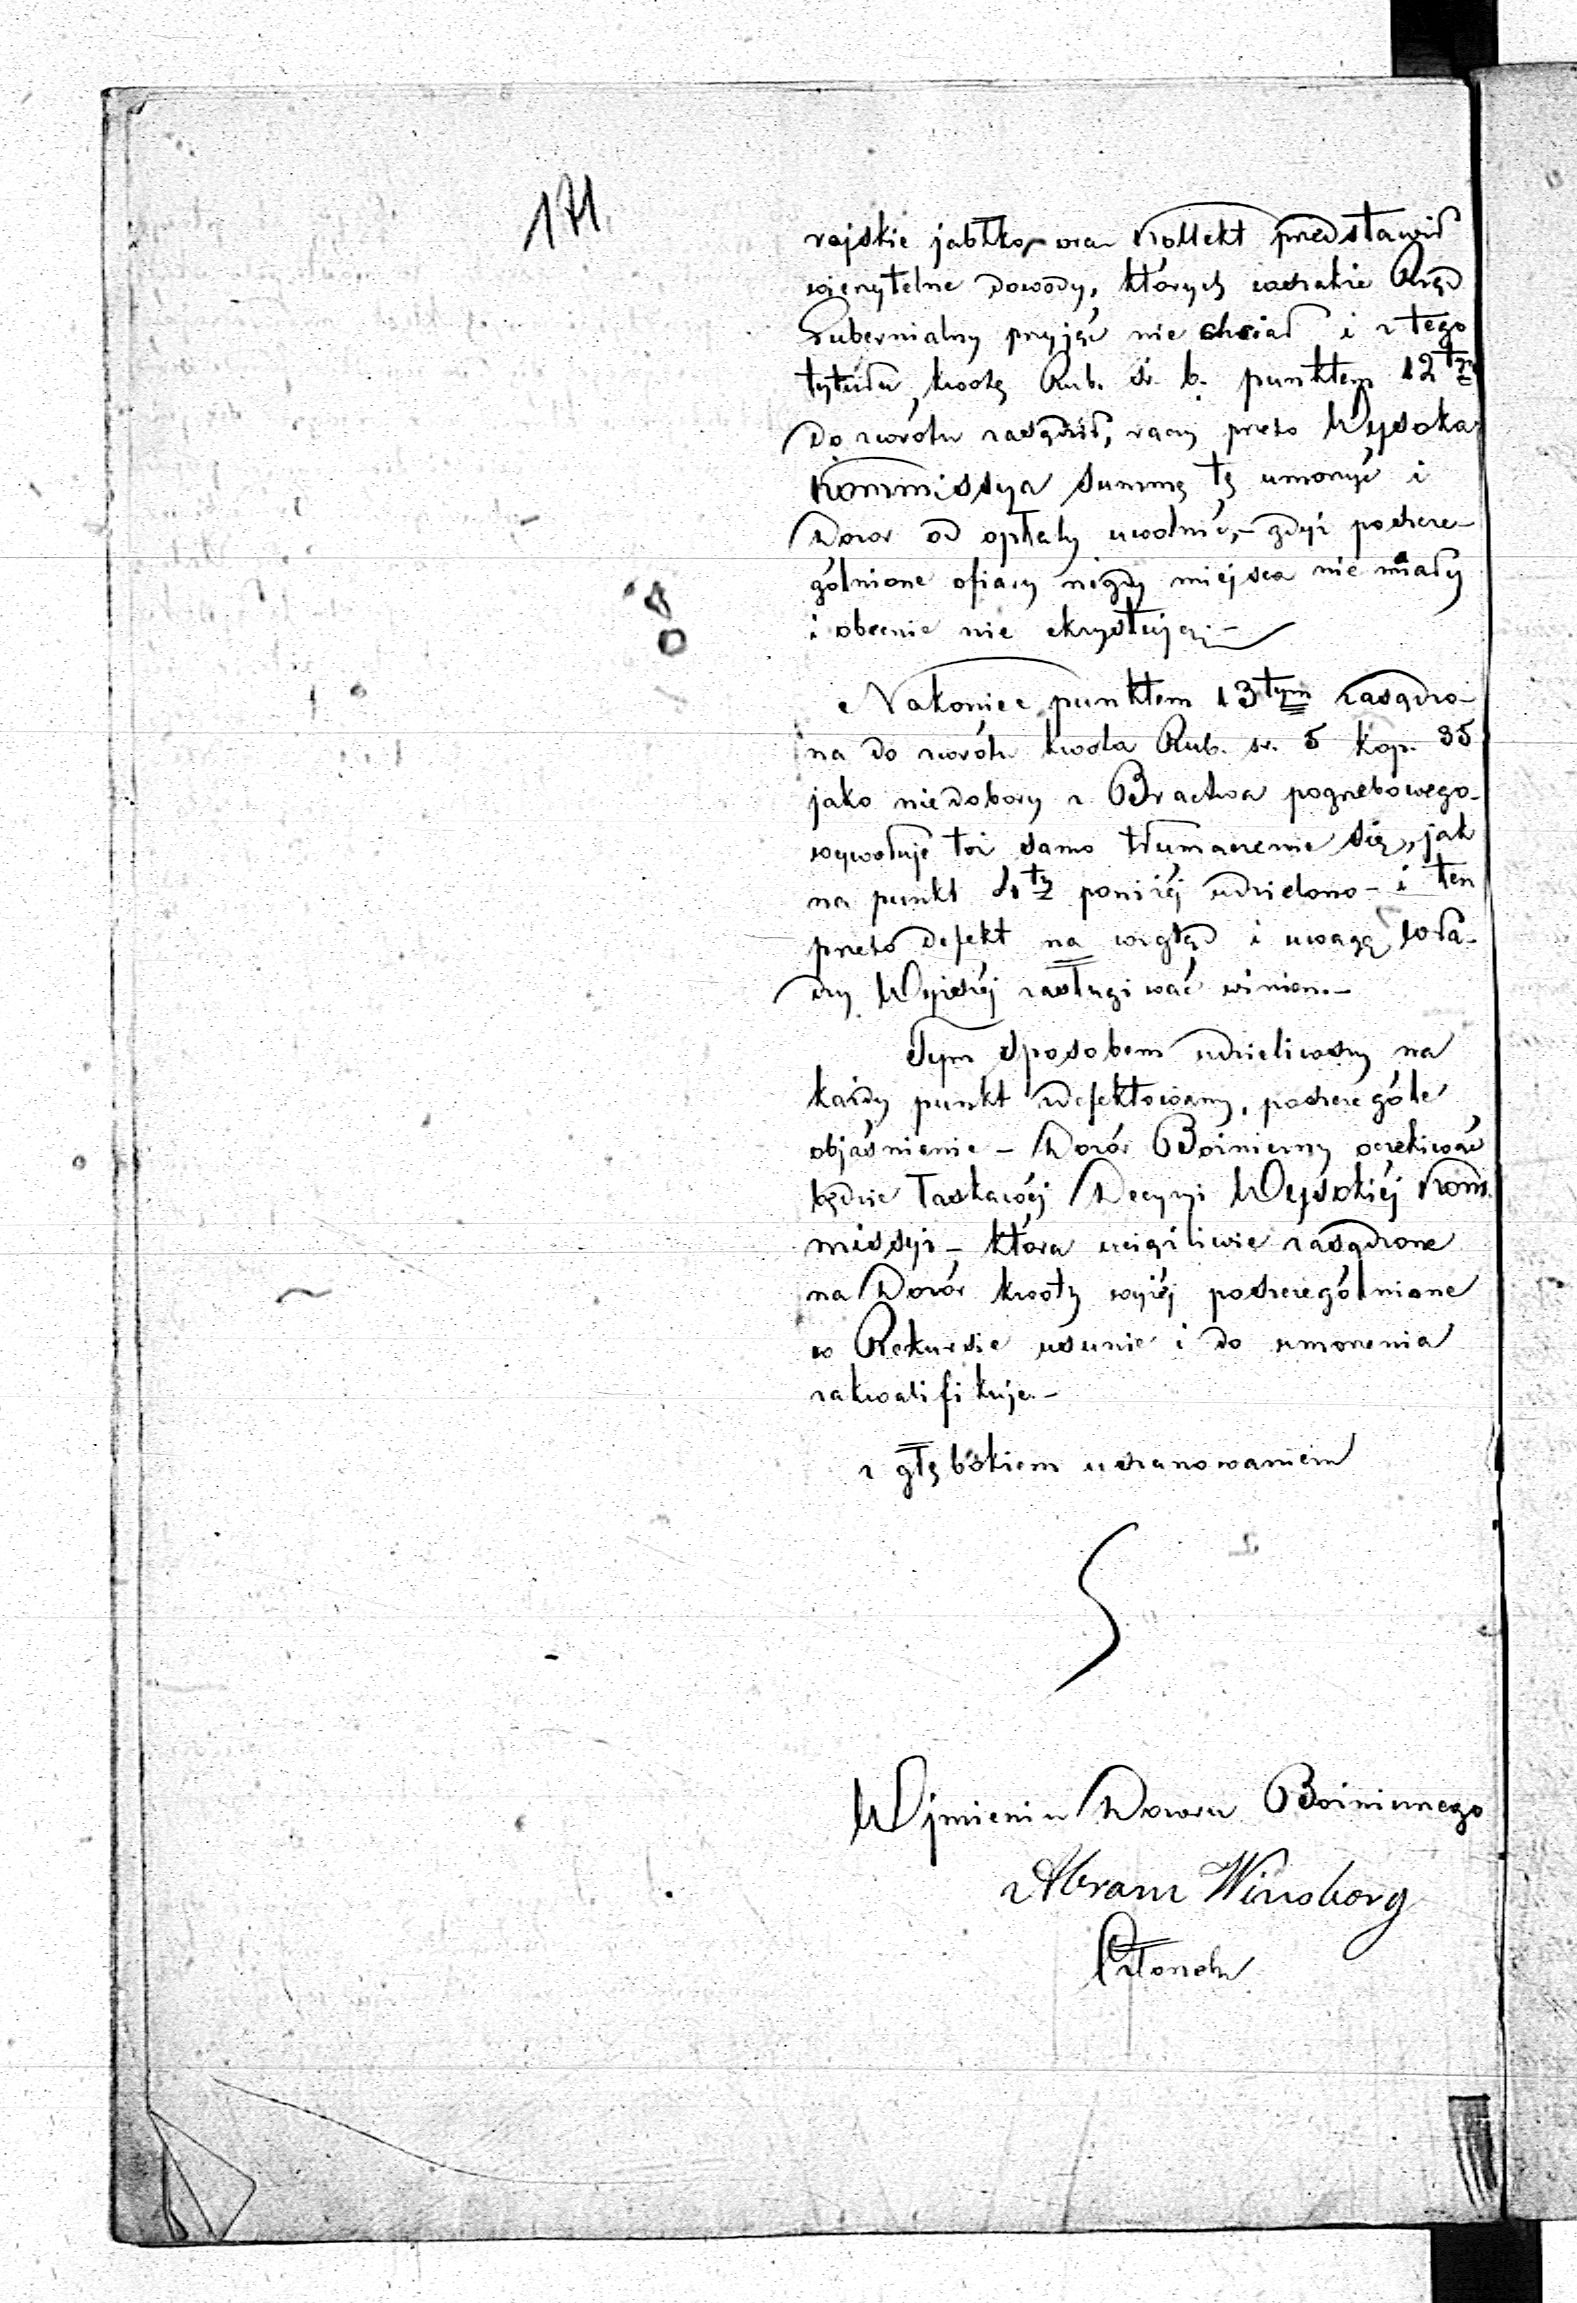 171.
rajskie jabłko, oraz Kollekt przedstawił
wierzytelne dowody, których wszakże Rząd
Gubernialny przyjąć nie chciał i z tego
tytułu, kwotę Rub. sr. 6. punktem 12tym
do zwrótu zasądził, raczy przeto Wysoka
Kommissya summę tę umorzyć i
Dozor od opłaty uwolnić, – gdyż poszcze-
gólnione ofiary nigdy miejsca nie miały
i obecnie nie exystują; –
Nakoniec punktem 13tym zasądzo-
na do zwrótu kwota Rub. sr. 5 kop. 35
jako niedobory z Bractwa pogrzebowego –
wywołuje toż samo tłumaczenie się, jak
na punkt 4ty poniżej udzielono – i ten
przeto defekt na wzgląd i uwagę Wła-
dzy Wyższéj zasługiwać winien. –
Tym sposobem udzieliwszy na
każdy punkt zdefektowany, poszczególe
objaśnienie – Dozór Bóżniczny oczekiwać
będzie łaskawéj Decyzyi Wysokiéj Kom-
missyi – która uciążliwie zasądzone
na Dozór kwoty wyżéj poszczególnione
w Rekursie usunie i do umorzenia
zakwalifikuje. –
z głębokiem uszanowaniem
W jmieniu Dozoru Bóżnicznego
Abram Winsborg
Członek